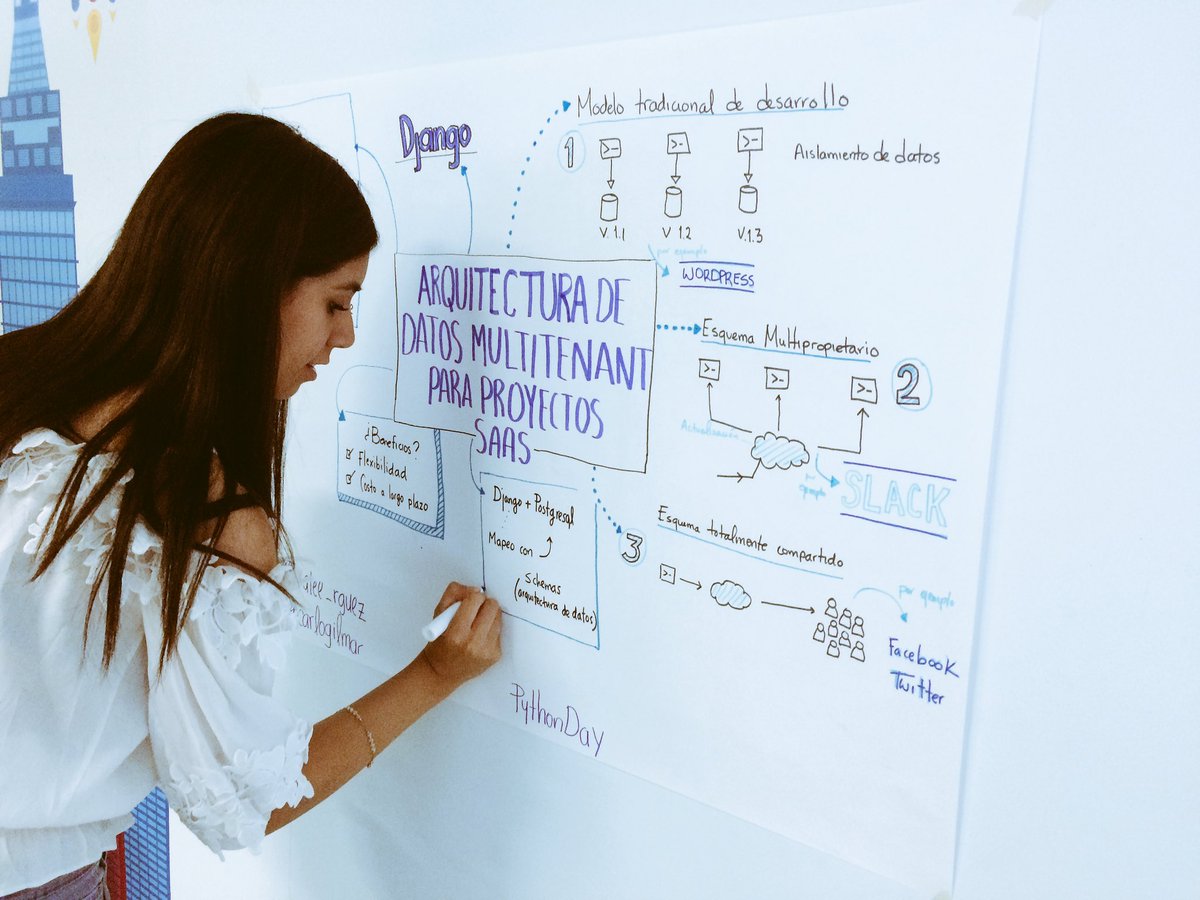 Django
Modelo tradicional de desarrollo
1
Aislamiento de datos
>-
>-
>-
V. 1.1
V. 1.2
V. 1.3
por ejemplo
WORDPRESS
ARQUITECTURA DE
DATOS MULTITENANT
PARA PROYECTOS
SAAS
Esquema Multipropietario
2
>-
>-
>-
Actualización
por ejemplo
SLACK
¿Beneficios?
Flexibilidad
Costo a largo plazo
Django + Postgresql
Mapeo con
schemas
(arquitectura de datos)
3
Esquema totalmente compartido
>-
por ejemplo
Facebook
Twitter
alee_rguez
carlogilmar
PythonDay